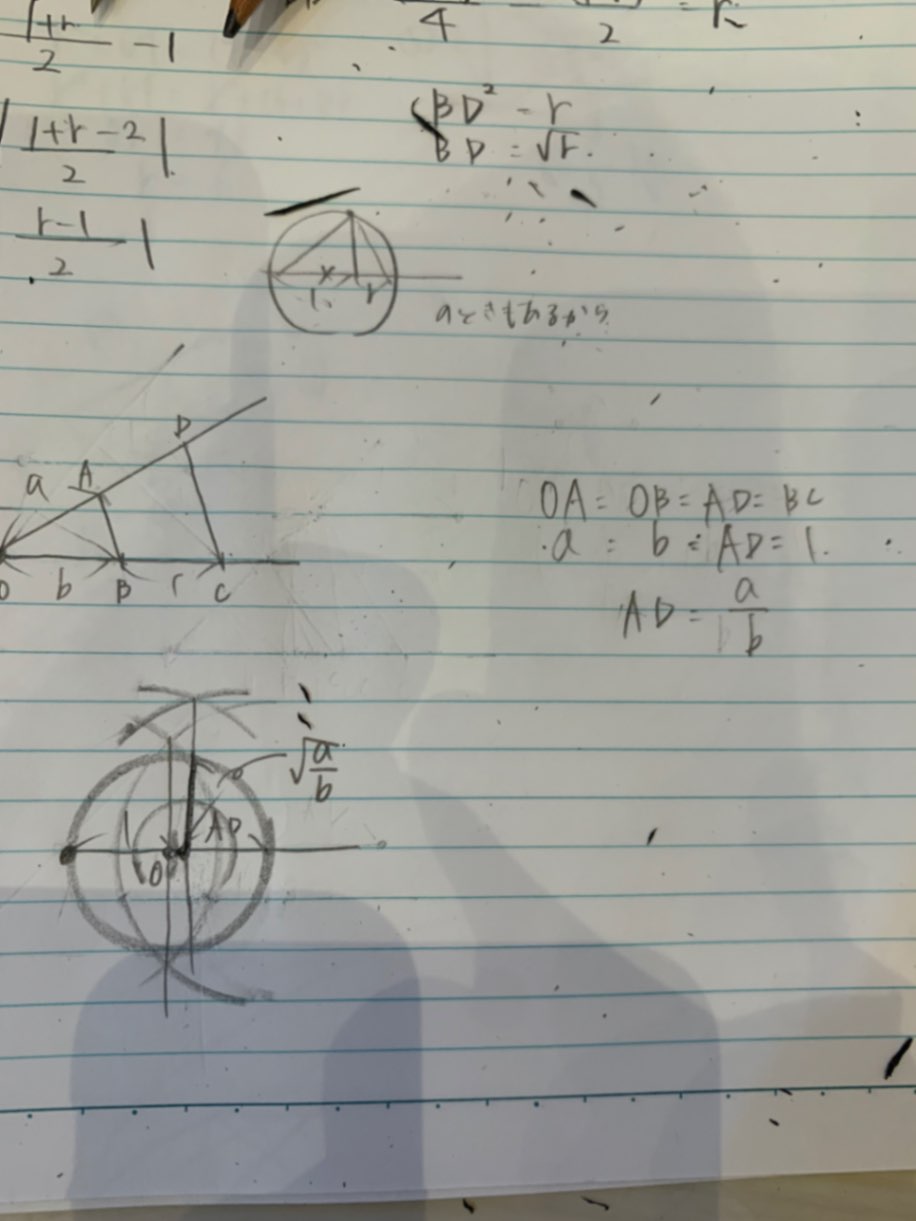 1+r/2 - 1
4 2 = r
BD² = r
BD = √r.
| 1+r-2/2 |
r-1/2 |
1. r
aときもあるから
D
a A
O b B r C
OA = OB = AD = BC
a = b = AD = 1.
AD = a/b
√a/b
1 AD
O